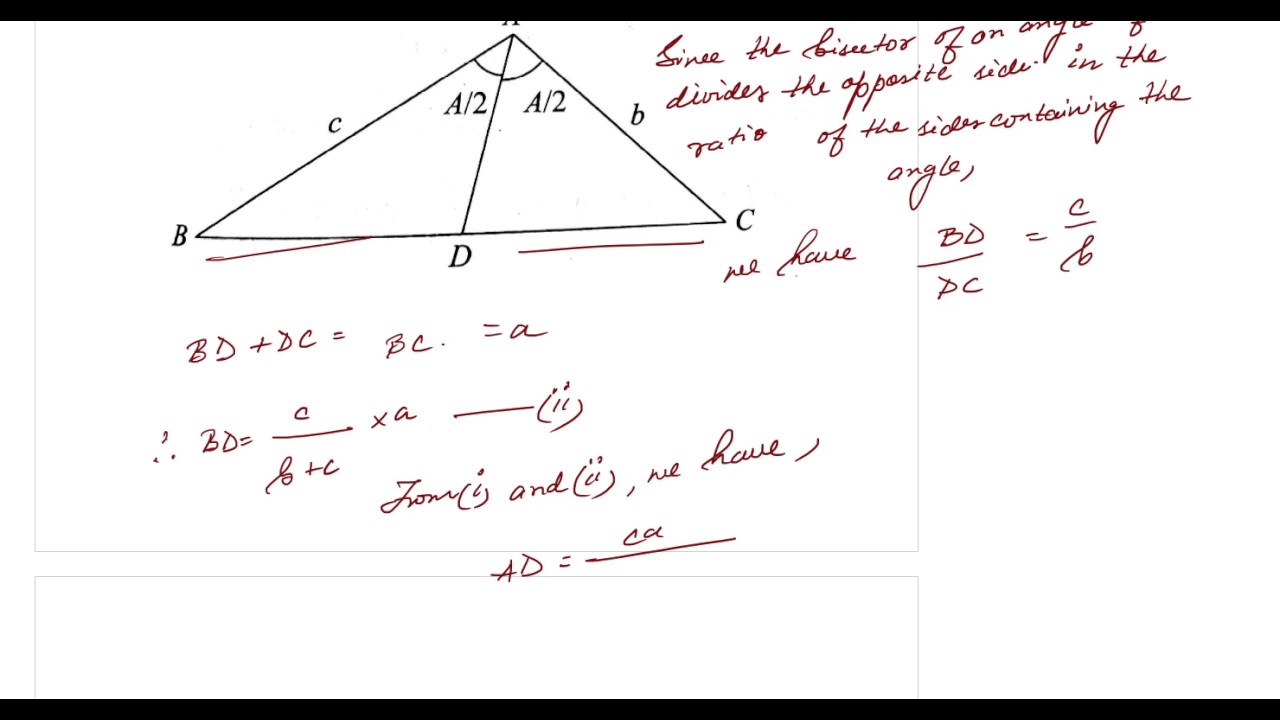 A
c
A/2
A/2
b
B
D
C
Since the bisector of an angle of
divides the opposite side in the
ratio of the sides containing the
angle,
we have BD/DC = c/b
BD + DC = BC. = a
∴ BD = c/b+c × a —— (ii)
From (i) and (ii), we have,
AD = ca/